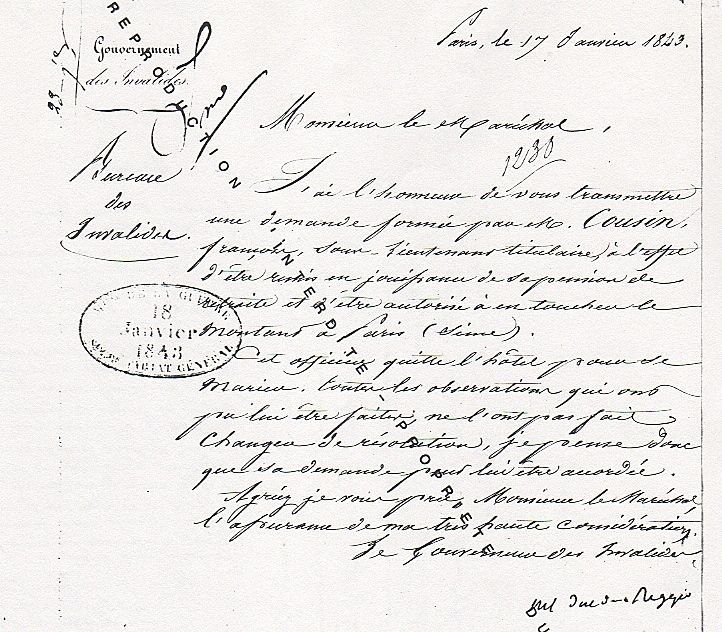 Paris, le 17 Janvier 1843.
Gouvernement
des Invalides.
Monsieur le Maréchal,
1230
Bureau
des
Invalides.
J'ai l'honneur de vous transmettre
une demande formée par M. Cousin,
françois, Sous-Lieutenant titulaire, à l'effet
d'être remis en jouissance de sa pension de
retraite et d'être autorisé à en toucher le
montant à Paris (Seine).
Cet officier quitte l'hôtel pour se
Marier. toutes les observations qui ont
pu lui être faites, ne l'ont pas fait
changer de résolution, je pense donc
que sa demande peut lui être accordée.
Agréez je vous prie, Monsieur le Maréchal
l'assurance de ma très haute considération.
Le Gouverneur des Invalides
Mal Duc de Reggio
18
Janvier
1843
REPRODUCTION INTERDITE - PROPRIETE